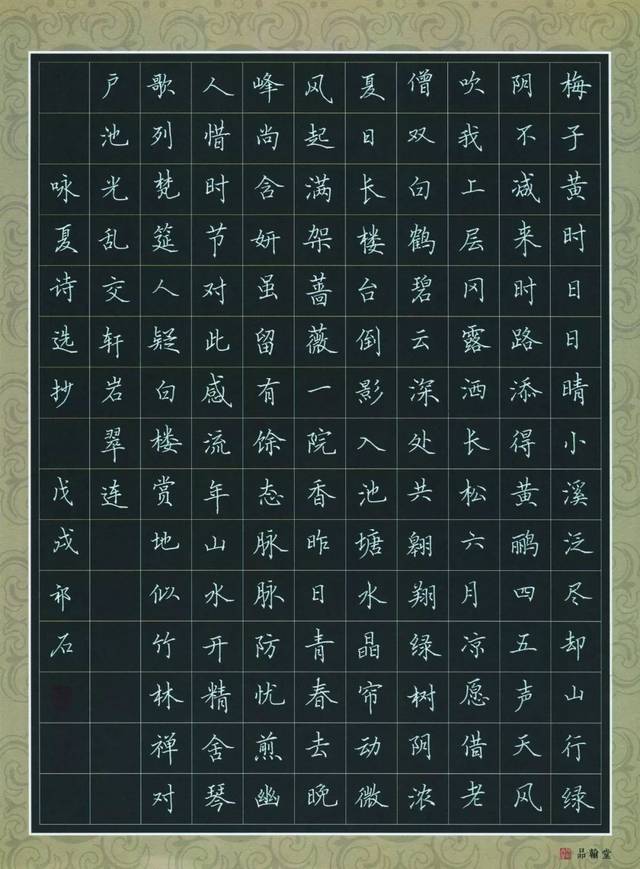 梅子黄时日日晴小溪泛尽却山行绿
阴不减来时路添得黄鹂四五声天风
吹我上层冈露洒长松六月凉愿借老
僧双白鹤碧云深处共翱翔绿树阴浓
夏日长楼台倒影入池塘水晶帘动微
风起满架蔷薇一院香昨日青春去晚
峰尚含妍虽留有馀态脉脉防忧煎幽
人惜时节对此感流年山水开精舍琴
歌列梵筵人疑白楼赏地似竹林禅对
户池光乱交轩岩翠连
咏夏诗选抄 戊戌祁石
品翰堂